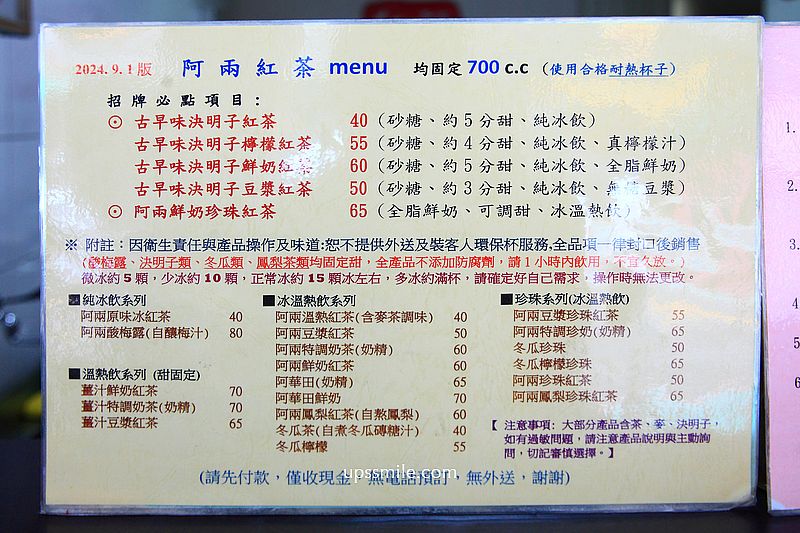 2024. 9. 1 版 阿兩紅茶 menu 均固定 700 c.c (使用合格耐熱杯子)
招牌必點項目:
⊙ 古早味決明子紅茶 40 (砂糖、約5分甜、純冰飲)
古早味決明子檸檬紅茶 55 (砂糖、約4分甜、純冰飲、真檸檬汁)
古早味決明子鮮奶紅茶 60 (砂糖、約5分甜、純冰飲、全脂鮮奶)
古早味決明子豆漿紅茶 50 (砂糖、約3分甜、純冰飲、無糖豆漿)
⊙ 阿兩鮮奶珍珠紅茶 65 (全脂鮮奶、可調甜、冰溫熱飲)
※ 附註:因衛生責任與產品操作及味道:恕不提供外送及裝客人環保杯服務,全品項一律封口後銷售
(酸梅露、決明子類、冬瓜類、鳳梨茶類均固定甜,全產品不添加防腐劑,請1小時內飲用,不宜久放。)
微冰約5顆,少冰約10顆,正常冰約15顆冰左右,多冰約滿杯,請確定好自己需求,操作時無法更改。
■純冰飲系列
阿兩原味冰紅茶 40
阿兩酸梅露(自釀梅汁) 80
■溫熱飲系列 (甜固定)
薑汁鮮奶紅茶 70
薑汁特調奶茶(奶精) 70
薑汁豆漿紅茶 65
■冰溫熱飲系列
阿兩溫熱紅茶(含麥茶調味) 40
阿兩豆漿紅茶 50
阿兩特調奶茶(奶精) 60
阿兩鮮奶紅茶 60
阿華田(奶精) 65
阿華田鮮奶 70
阿兩鳳梨紅茶(自熬鳳梨) 60
冬瓜茶(自煮冬瓜磚糖汁) 40
冬瓜檸檬 55
■珍珠系列(冰溫熱飲)
阿兩豆漿珍珠紅茶 55
阿兩特調珍奶(奶精) 65
冬瓜珍珠 50
冬瓜檸檬珍珠 65
阿兩珍珠紅茶 50
阿兩鳳梨珍珠紅茶 65
【 注意事項: 大部分產品含茶、麥、決明子,
如有過敏問題,請注意產品說明與主動詢
問,切記審慎選擇。】
(請先付款,僅收現金,無電話預訂,無外送,謝謝)
upssmile.com
1.
2.
3.
4.
5
6